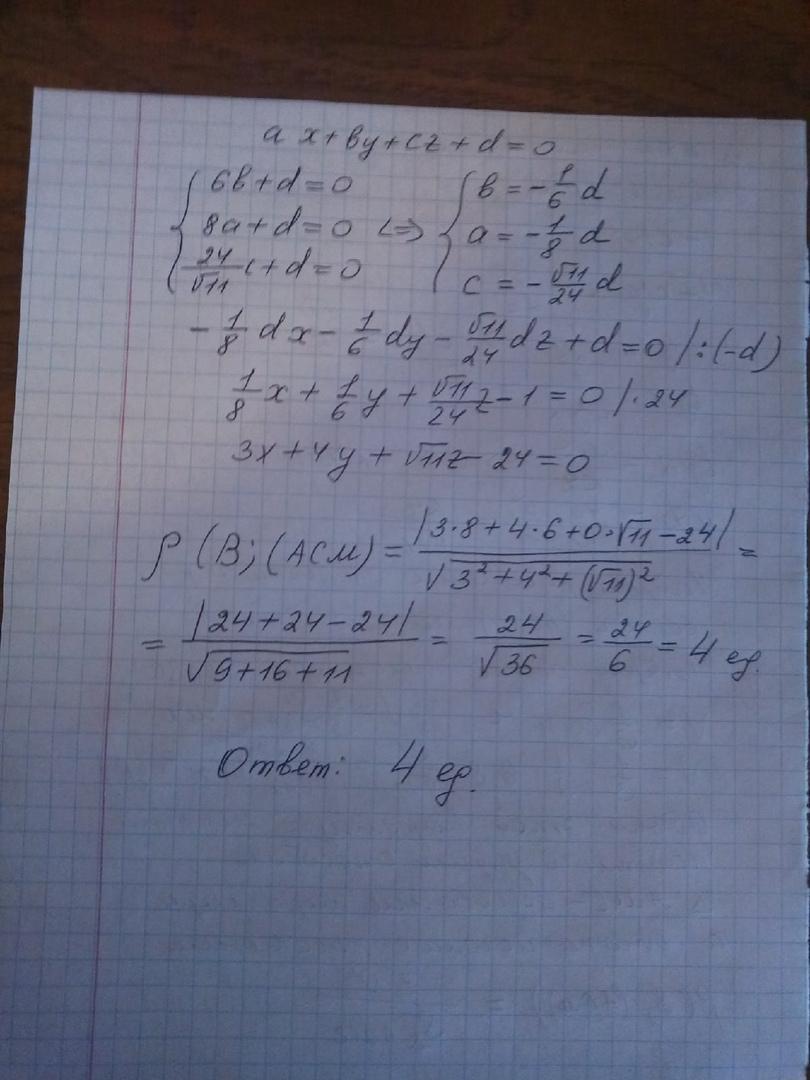 ax+by+cz+d=0
{6b+d=0 {b=-1/6 d
8a+d=0 <=> a=-1/8 d
24/√11 c+d=0 c=-√11/24 d
-1/8 dx-1/6 dy-√11/24 dz+d=0 /:(-d)
1/8 x+1/6 y+√11/24 z-1=0 /·24
3x+4y+√11z-24=0
ρ(B;(ACM)=|3·8+4·6+0·√11-24|/√(3²+4²+(√11)²)=
=|24+24-24|/√(9+16+11)=24/√36=24/6=4 ед.
Ответ: 4 ед.